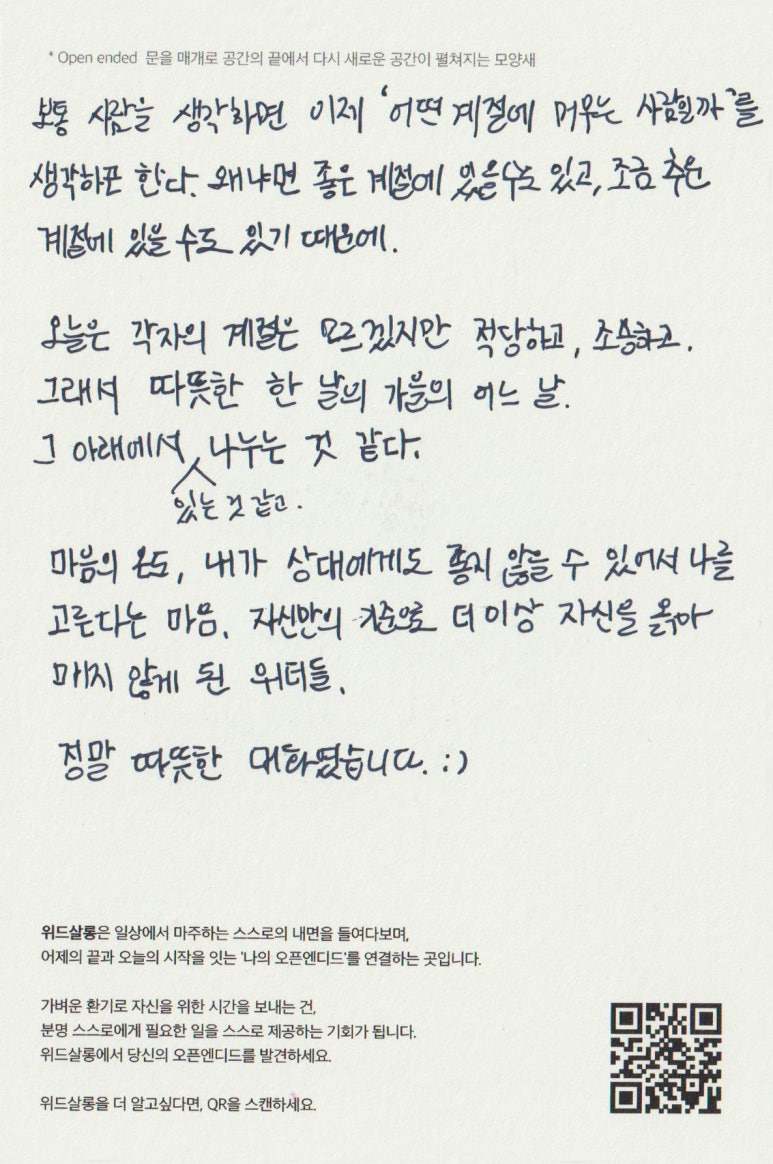 * Open ended 문을 매개로 공간의 끝에서 다시 새로운 공간이 펼쳐지는 모양새
보통 사람을 생각하면 이제 '어떤 계절에 머무는 사람일까'를
생각하곤 한다. 왜냐면 좋은 계절에 있을수도 있고, 조금 추운
계절에 있을 수도 있기 때문에.
오늘은 각자의 계절은 모르겠지만 적당하고, 소중하고.
그래서 따뜻한 한 날의 가을의 어느 날.
그 아래에서 나누는 것 같다.
있는 것 같고.
마음의 온도, 내가 상대에게도 좋지 않을 수 있어서 나를
고른다는 마음. 자신만의 기준으로 더 이상 자신을 옭아
매지 않게 된 위터들.
정말 따뜻한 대화였습니다. :)
위드살롱은 일상에서 마주하는 스스로의 내면을 들여다보며,
어제의 끝과 오늘의 시작을 잇는 '나의 오픈엔디드'를 연결하는 곳입니다.
가벼운 환기로 자신을 위한 시간을 보내는 건,
분명 스스로에게 필요한 일을 스스로 제공하는 기회가 됩니다.
위드살롱에서 당신의 오픈엔디드를 발견하세요.
위드살롱을 더 알고싶다면, QR을 스캔하세요.